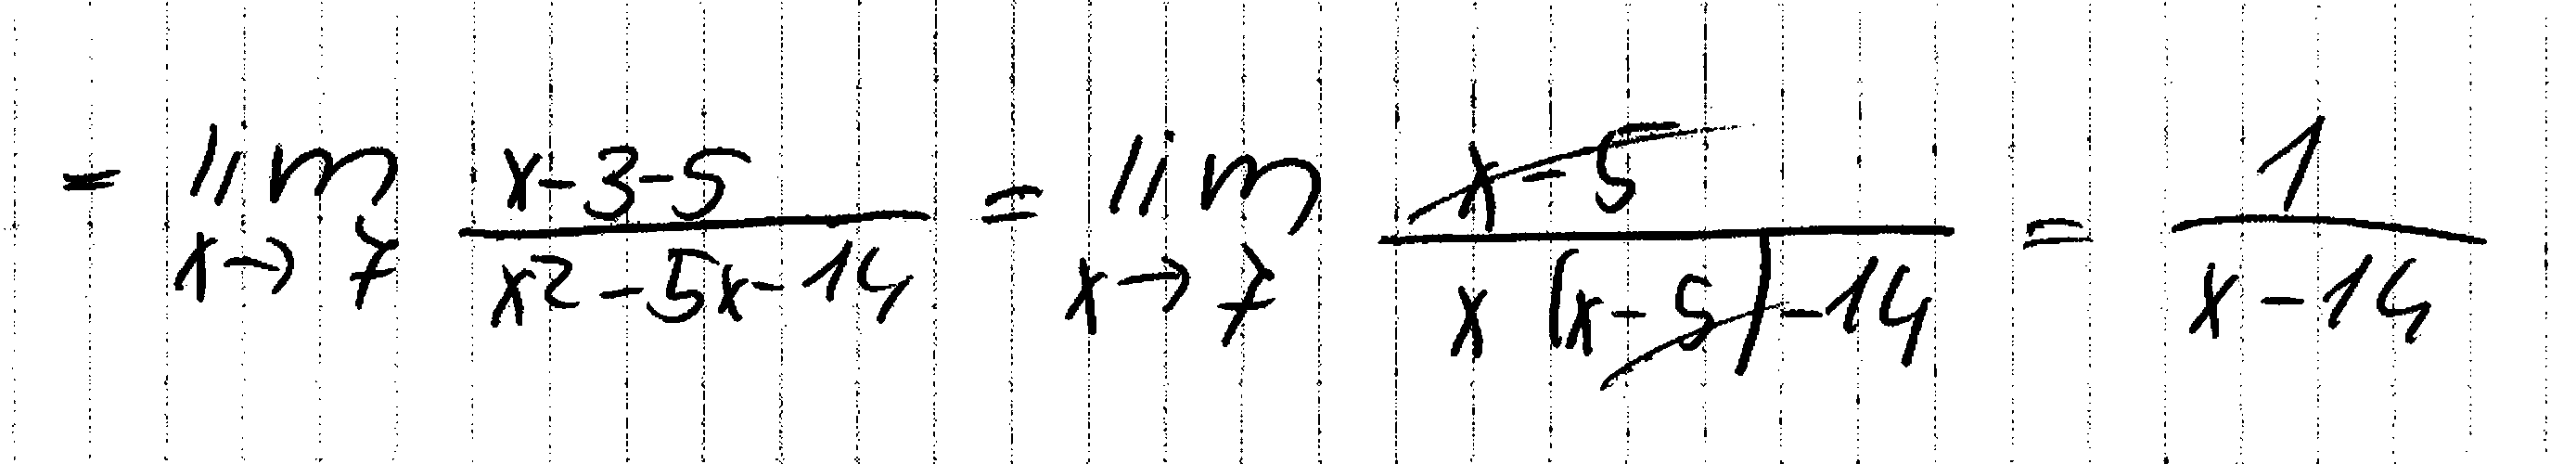 = lim x→7 (x-3-5)/(x2-5x-14) = lim x→7 (x-5)/(x(x-5)-14) = 1/(x-14)